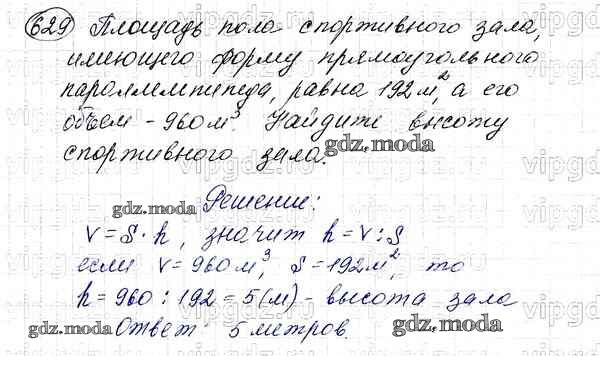 629 Площадь пола спортивного зала,
имеющего форму прямоугольного
параллелепипеда, равна 192 м², а его
объем - 960 м³. Найдите высоту
спортивного зала.
gdz.moda
gdz.moda Решение:
V = S · h, значит h = V : S
если V = 960 м³, S = 192 м², то
h = 960 : 192 = 5 (м) - высота зала
gdz.moda Ответ: 5 метров. gdz.moda